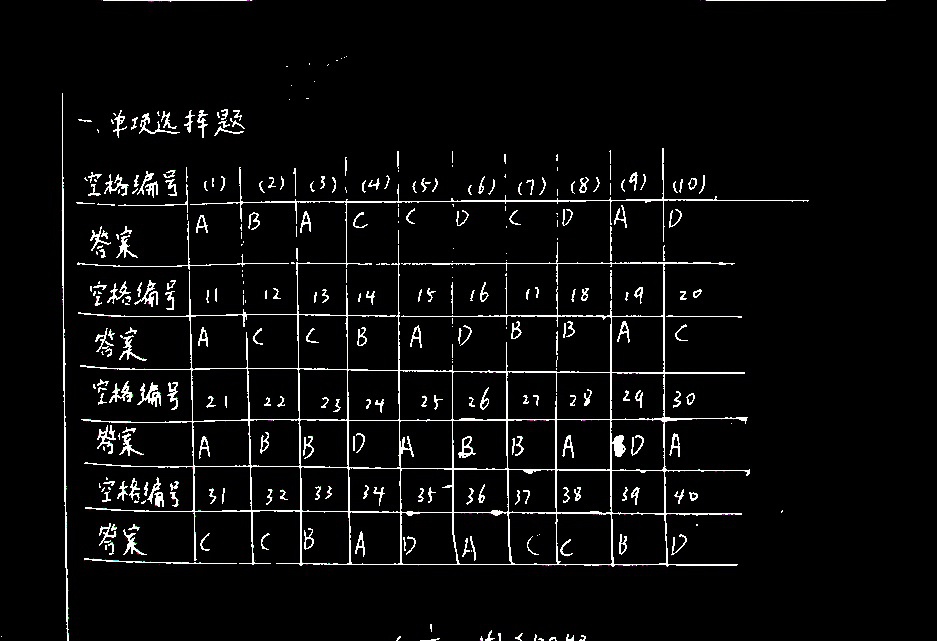 一、单项选择题
空格编号 (1) (2) (3) (4) (5) (6) (7) (8) (9) (10)
答案 A B A C C D C D A D
空格编号 11 12 13 14 15 16 17 18 19 20
答案 A C C B A D B B A C
空格编号 21 22 23 24 25 26 27 28 29 30
答案 A B B D A B B A D A
空格编号 31 32 33 34 35 36 37 38 39 40
答案 C C B A D A C C B D